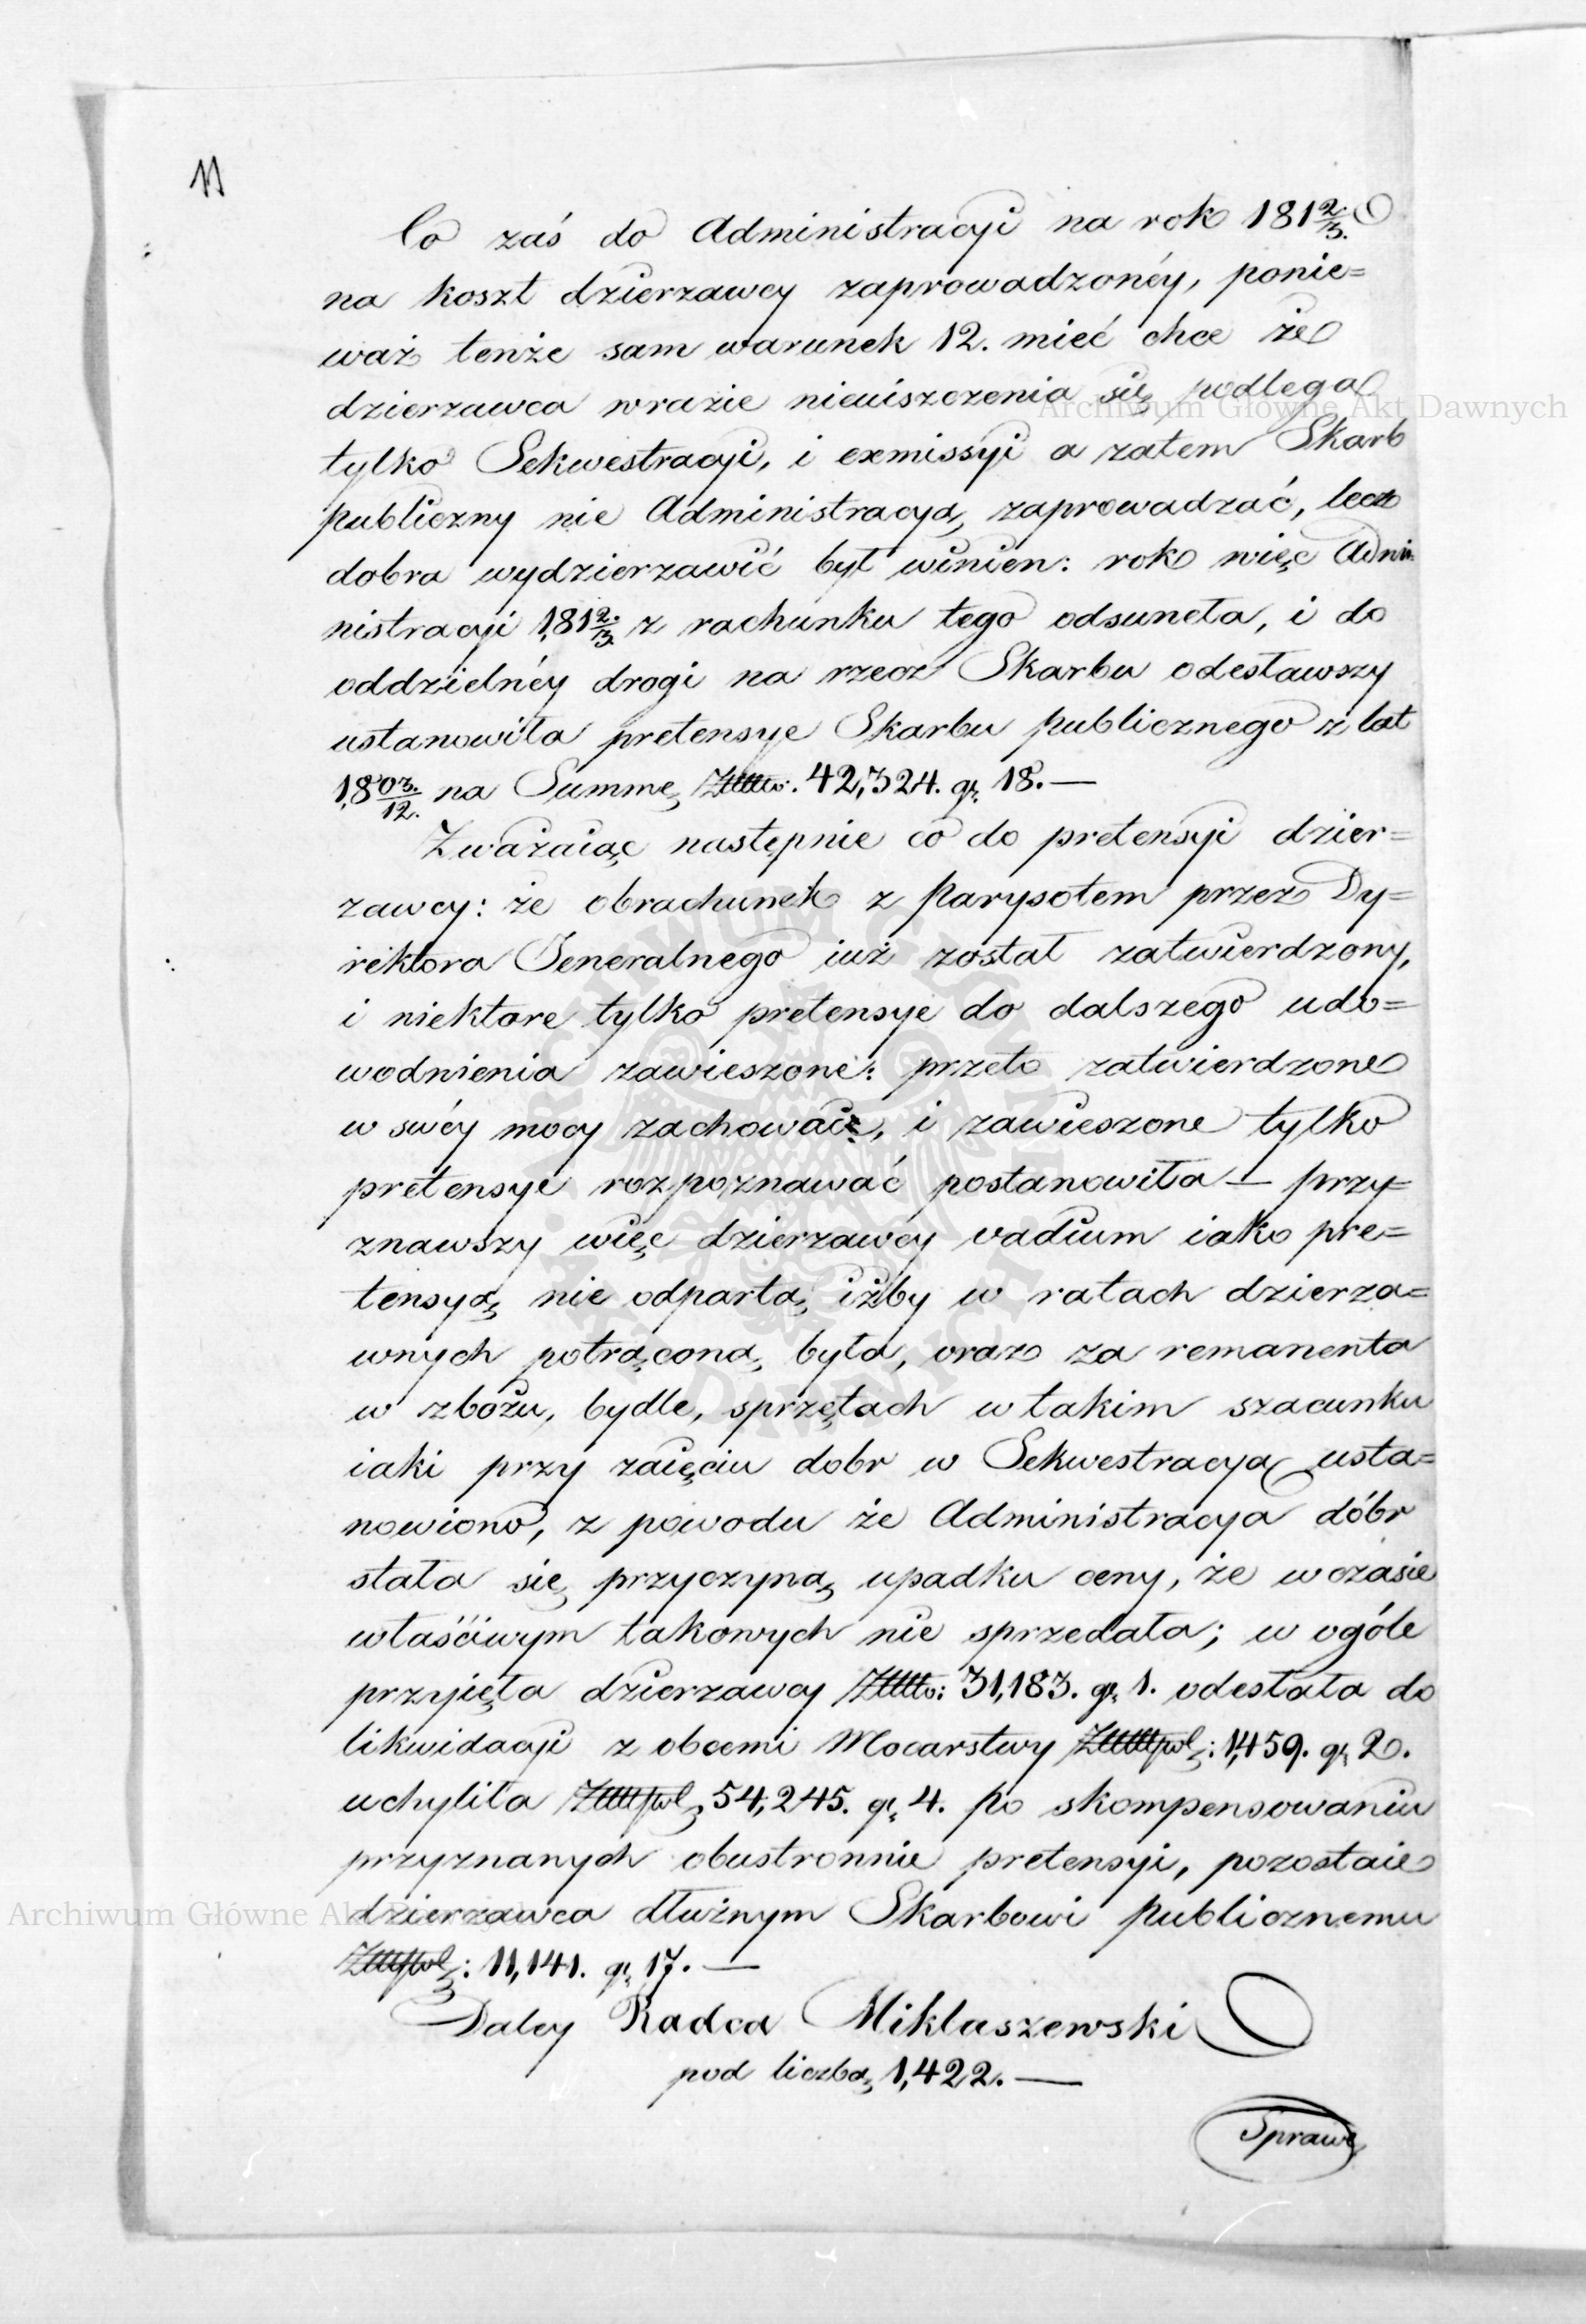 11
Co zaś do Administracyi na rok 181 2/3.
na koszt dzierzawcy zaprowadzonéy, ponie=
waż tenże sam warunek 12. mieć chce że
dzierzawca wrazie nieuiszczenia się podlega
tylko Sekwestracyi, i exmissyi a zatem Skarb
publiczny nie Administracyą zaprowadzać, lecz
dobra wydzierzawić był winien: rok więc Admi=
nistracyi 181 2/3. z rachunku tego odsuneła, i do
oddzielnéy drogi na rzecz Skarbu odesławszy
ustanowiła pretensye Skarbu publicznego z lat
18 03/12. na Summę 42,324. gr. 18.—
Zważaiąc następnie co do pretensyi dzier=
zawcy: że obrachunek z Parysotem przez Dy=
rektora Generalnego iuż został zatwierdzony,
i niektore tylko pretensye do dalszego udo=
wodnienia zawieszone: przeto zatwierdzone
w swéy mocy zachować, i zawieszone tylko
pretensye rozpoznawać postanowiła — przy=
znawszy więc dzierzawcy vadium iako pre=
tensyą nie odpartą iżby w ratach dzierza=
wnych potrąconą była, oraz za remanenta
w zbożu, bydle, sprzętach w takim szacunku
iaki przy zaięciu dobr w Sekwestracyą usta=
nowiono, z powodu że Administracya dóbr
stała się przyczyną upadku ceny, że w czasie
właściwym takowych nie sprzedała; w ogóle
przyięła dzierzawcy 31,183. gr. 1. odesłała do
likwidacyi z obcemi Mocarstwy 1,459. gr. 20.
uchyliła 54,245. gr. 4. po skompensowaniu
przyznanych obustronnie pretensyi, pozostaie
dzierzawca dłużnym Skarbowi publicznemu
11,141. gr. 17.—
Daley Radca Miklaszewski
pod liczbą 1,422.—
Sprawę
Archiwum Główne Akt Dawnych
Archiwum Główne Ak
ARCHIWUM GŁÓWNE AKT DAWNYCH